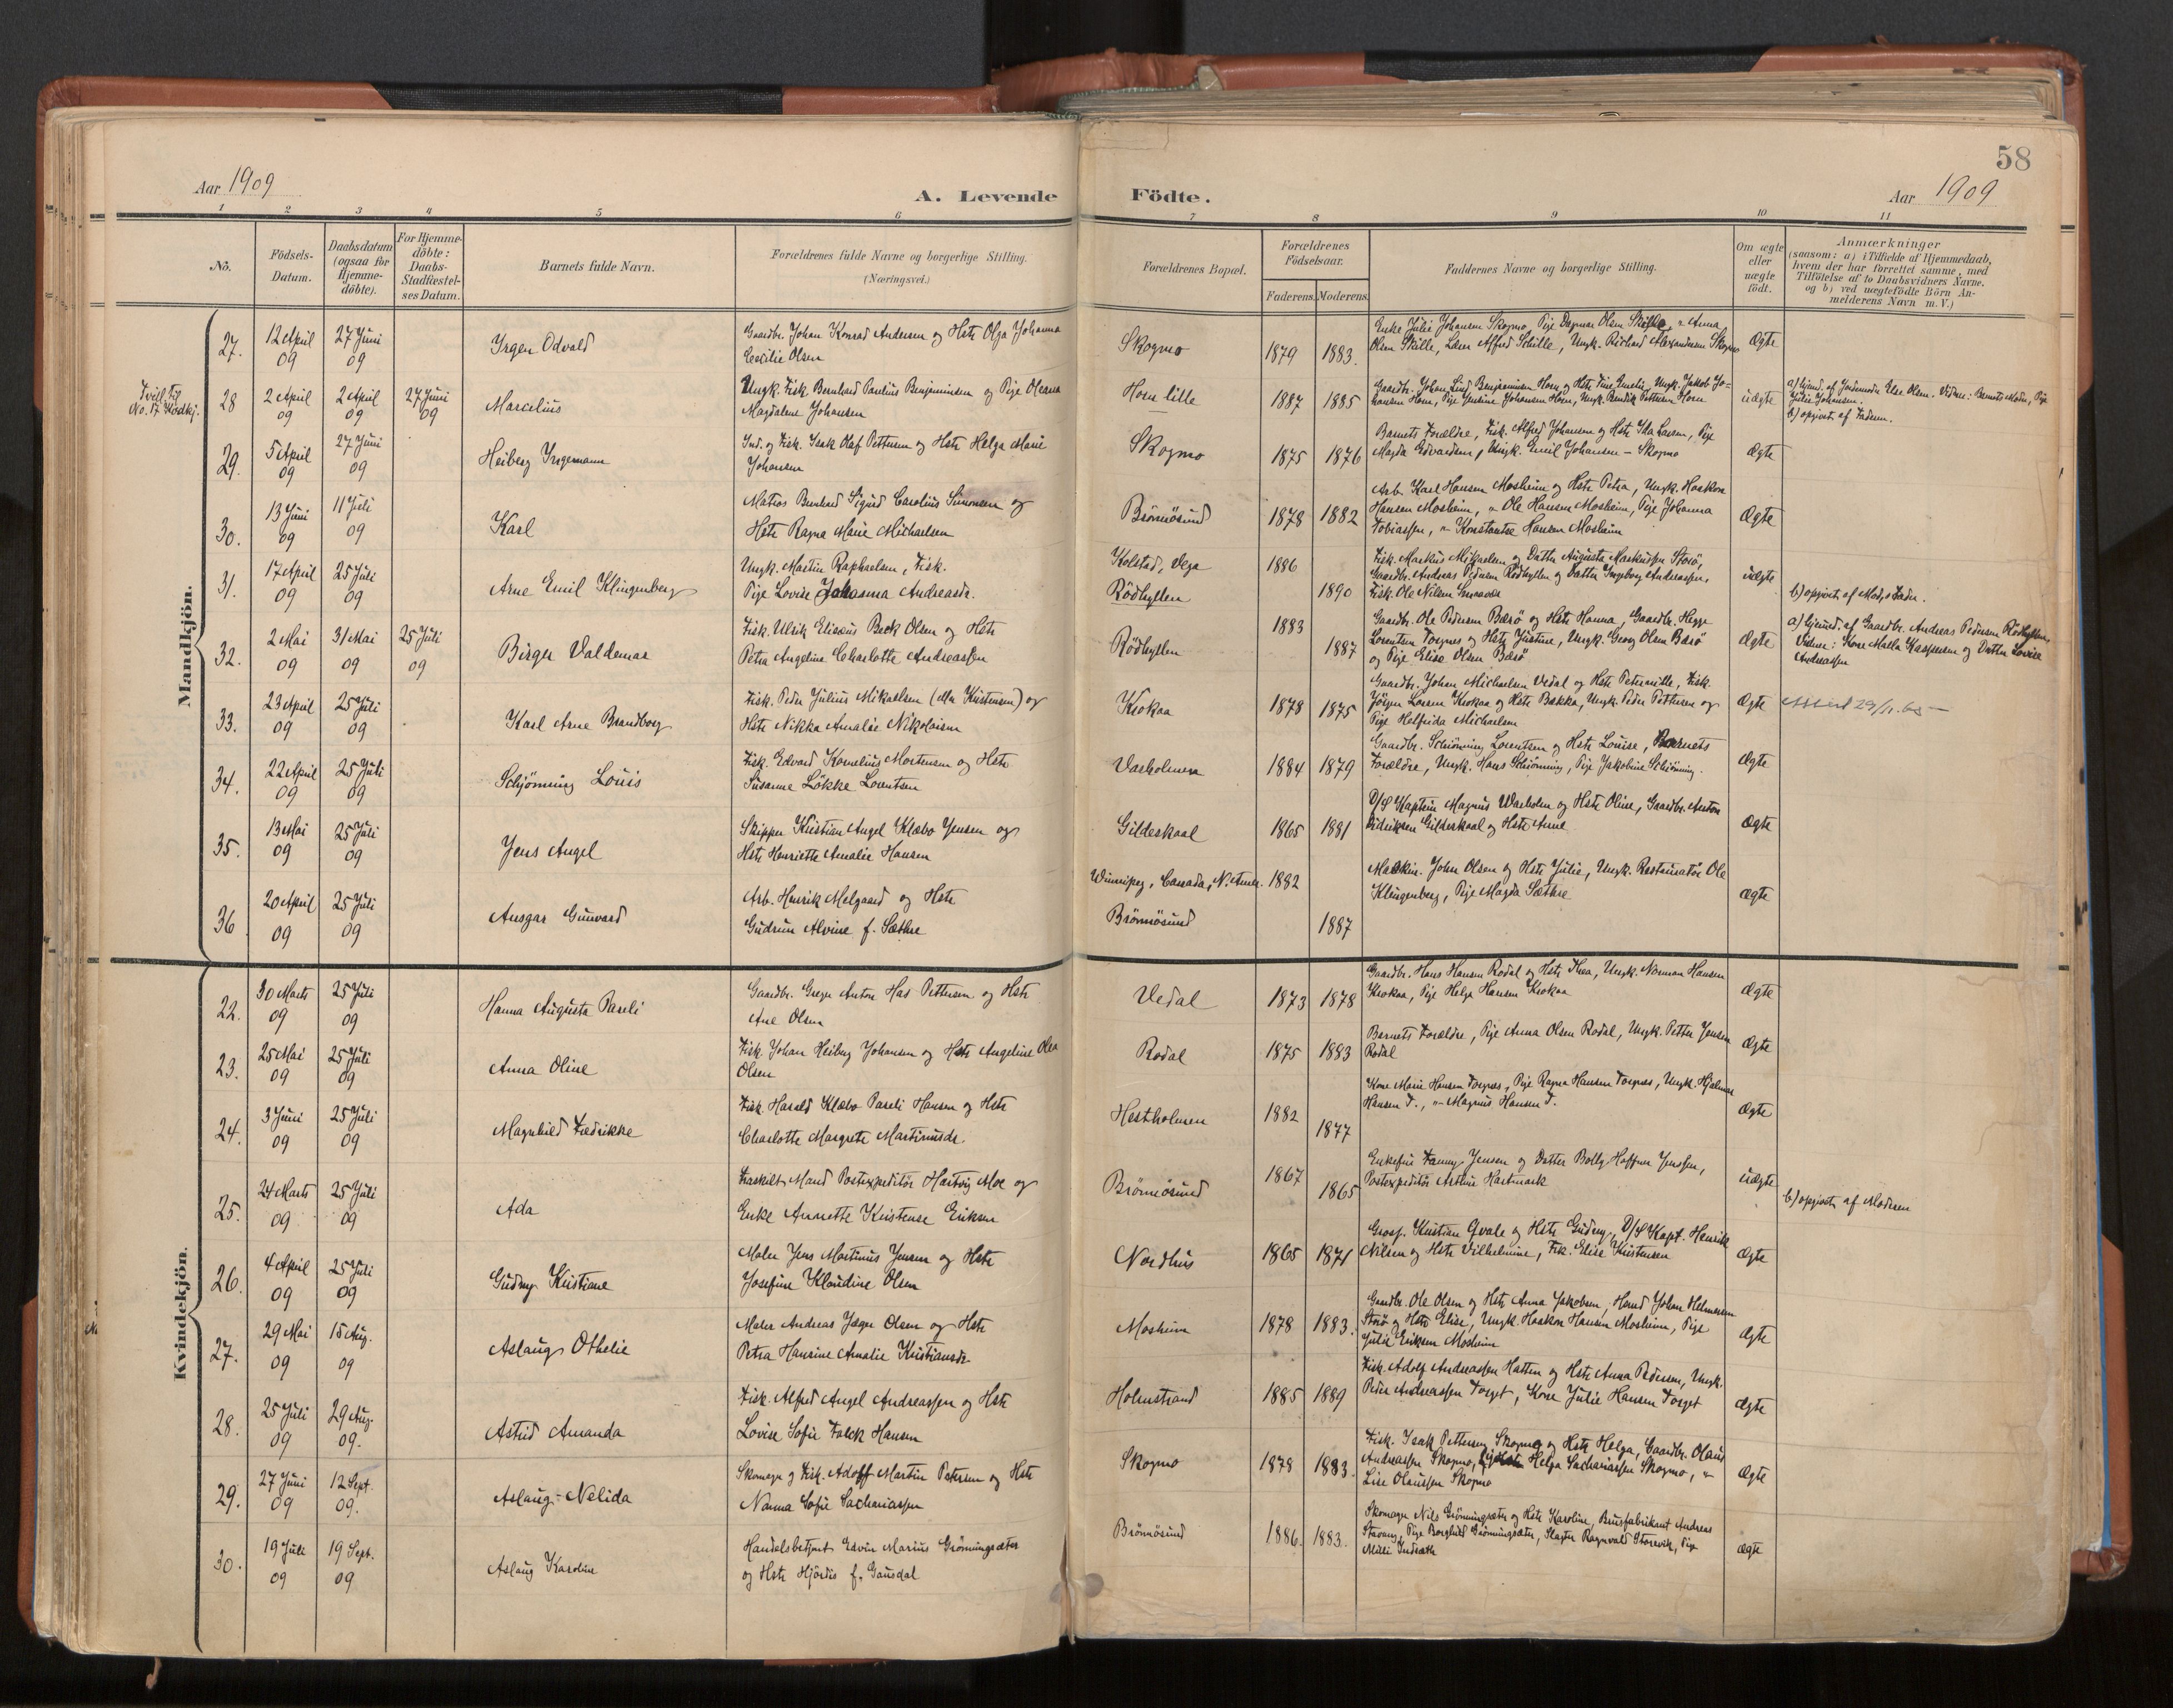 58
Aar 1909
A. Levende
Födte.
Aar 1909
1 2 3 4 5 6 7 8 9 10 11
No.
Födsels-Datum.
Daabsdatum (ogsaa for Hjemme-döbte).
For Hjemme-döbte: Daabs-Stadfæstel-ses Datum.
Barnets fulde Navn.
Forældrenes fulde Navne og borgerlige Stilling.
(Næringsvei.)
Forældrenes Bopæl.
Forældrenes Födselsaar.
Faderens. Moderens.
Faddernes Navne og borgerlige Stilling.
Om ægte eller uægte födt.
Anmærkninger
(saasom: a) i Tilfælde af Hjemmedaab, hvem der har forrettet samme, med Tilföielse af to Daabsvidners Navne, og b) ved uægtefödte Börn Anmelderens Navn m. V.)
Mandkjön.
27. 12 April 09 27 Juni 09 Yrgen Odvald
Gaardbr. Johan Konrad Andersen og Hstr Olga Johanna
Cecilie Olsen
Skogmo 1879 1883.
Enke Julie Johansen Skogmo, Pige Dagmar Olsen Skille, " Anna
Olsen Skille, Alfred Skille, Ungk. Richard Alexandersen Skogmo
Ægte
Tvill. til No. 17 Kvdkj.
28 2 April 09 2 April 09 27 Juni 09 Marcelius
Ungk. Fisk. Bernhard Paulius Benjaminsen og Pige Oleana
Magdalene Johansen
Horn lille 1887 1885
Gaardbr. Johan Lind Benjaminsen Horn og Hstr Tine Emelie, Ungk. Jakob Jo-
hansen Horn, Pige Jensine Johansen Horn, Ungk. Bendik Pettersen Horn
uægte
a) hjemd. af Jordemoder Else Olsen. Vidner: Barnets Moder, Pige
Julie Johansen.
b) opgivet af Faderen.
29. 5 April 09 27 Juni 09 Heiberg Yngemann
Ind. og Fisk. Isak Olaf Pettersen og Hstr Helga Marie
Johansen
Skogmo 1875 1876
Barnets Forældre, Fisk. Alfred Johansen og Hstr Ida Larsen, Pige
Magda Edvardsen, Ungk. Emil Johansen - Skogmo
Ægte
30. 13 Juni 09 11 Juli 09 Karl
Matros Bernhard Sigurd Carolius Simonsen og
Hstr Ragna Marie Michaelsen
Brönnösund 1878 1882
Arb. Karl Hansen Mosheim og Hstr Petra, Ungk. Haakon
Hansen Mosheim, " Ole Hansen Mosheim, Pige Johanna
Tobiassen, " Konstanse Hansen Mosheim
Ægte
31. 17 April 09 25 Juli 09 Arne Emil Klingenberg
Ungk. Martin Raphaelsen, Fisk.
Pige Lovise Johanna Andreasdr.
Kolstad, Vega 1886
Rödhyllen 1890
Fisk. Markus Mikaelsen og Datter Augusta Markussen Storö,
Gaardbr. Andreas Pedersen Rödhyllen og Datter Ingeborg Andreassen,
Fisk. Ole Nilsen
uægte
b) opgivet af Mod. & Fader.
32. 2 Mai 09 31 Mai 09 25 Juli 09 Birger Valdemar
Fisk. Ulrik Eliseus Beck Olsen og Hstr
Petra Angeline Charlotte Andreassen
Rödhyllen 1883 1887
Gaardbr. Ole Pedersen Barsö og Hstr Hanna, Gaardbr. Hegge
Lorentsen Torgnes og Hstr Justine, Ungk. Georg Olsen Barsö
og Pige Elise Olsen Barsö
Ægte
a) hjemd. af Gaardbr. Andreas Pedersen Rödhyllen,
Vidner: Kone Malla Kaspersen og Datter Lovise
Andreassen
33. 23 April 09 25 Juli 09 Karl Arne Brandborg
Fisk. Peder Julius Mikaelsen (eller Kristensen) og
Hstr Nikka Amalie Nikolaisen
Krokaa 1878 1875
Gaardbr. Johan Michaelsen Vedal og Hstr Peternille, Fisk.
Jörgen Larsen Krokaa og Hstr Bakka, Ungk. Peder Pettersen og
Pige Halfrida Michaelsen
Ægte
Attest 29/11.65 -
34. 22 April 09 25 Juli 09 Schjönning Louis
Fisk. Edvard Kornelius Mortensen og Hstr
Susanne Lökke Lorentsen
Varholmen 1884 1879
Gaardbr. Schiönning Lorentsen og Hstr Louise, Barnets
Forældre, Ungk. Hans Schiönning, Pige Jakobine Schiönning.
Ægte
35. 13 Mai 09 25 Juli 09 Jens Angel
Skipper Kristian Angel Klæbo Jensen og
Hstr Henriette Amalie Hansen
Gildeskaal 1865 1881
D/S Kaptein Magnus Varholm og Hstr Oline, Gaardbr. Anton
Didriksen Gildeskaal og Hstr Anne
Ægte
36 20 April 09 25 Juli 09 Ansgar Gunvard
Arb. Henrik Melgaard og Hstr
Gudrun Alvine f. Sæthre
Winnipeg, Canada, N. Amer. 1882
Brönnösund 1887
Maskin. John Olsen og Hstr Julie, Ungk. Restauratör Ole
Klingenberg, Pige Magda Sæthre
Ægte
Kvindekjön.
22. 30 Marts 09 25 Juli 09 Hanna Augusta Pareli
Gaardbr. Greger Anton Has Pettersen og Hstr
Ane Olsen
Vedal 1873 1878
Gaardbr. Hans Hansen Rodal og Hstr Thea, Ungk. Norman Hansen
Krokaa, Pige Helga Hansen Krokaa
Ægte
23. 25 Mai 09 25 Juli 09 Anna Oline
Fisk. Johan Heiberg Johansen og Hstr Angeline Olea
Olsen
Rodal 1875 1883
Barnets Forældre, Pige Anna Olsen Rodal, Ungk. Petter Jensen
Rodal
Ægte
24. 3 Juni 09 25 Juli 09 Magnhild Fredrikke
Fisk. Harald Klæbo Pareli Hansen og Hstr
Charlotte Margrete Martinusdr.
Hestholmen 1882 1877
Kone Marie Hansen Torgnes, Pige Ragna Hansen Torgnes, Ungk. Hjalmar
Hansen T., " Magnus Hansen T.
Ægte
25. 24 Marts 09 25 Juli 09 Ada
Fraskilt Mand Postexpeditör Hartvig Moe og
Enke Annette Kristense Eriksen
Brönnösund 1867 1865
Enkefru Fanny Jensen og Datter Bolly Hoffmr Jenssen,
Postexpeditör Arthur Hartmark
uægte
b) opgivet af Moderen
26. 4 April 09 25 Juli 09 Gudny Kristiane
Maler Jens Martinus Jensen og Hstr
Josefine Klaudine Olsen
Nordhus 1865 1871
Gross. Kristian Qvale og Hstr Gudny, D/S Kapt. Henrik
Nilsen og Hstr Vilhelmine, Frk. Elise Kristensen
Ægte
27. 29 Mai 09 15 Aug. 09 Aslaug Othelie
Maler Andreas Jæger Olsen og Hstr
Petra Hansine Amalie Kristiansdr.
Mosheim 1878 1883.
Gaardbr. Ole Olsen og Hstr Anna Jakobsen, Hand. Johan Helmersen
Storö og Hstr Elise, Ungk. Haakon Hansen Mosheim, Pige
Julie Eriksen Mosheim
Ægte
28. 25 Juli 09 29 Aug. 09. Astrid Amanda
Fisk. Alfred Angel Andreassen og Hstr
Lovise Sofie Falck Hansen
Holmstrand 1885 1889
Fisk. Adolf Andreassen Hatten og Hstr Anna Pedersen, Ungk.
Peder Andreassen Torget, Kone Julie Hansen Torget
Ægte
29. 27 Juni 09 12 Sept. 09. Aslaug-Nelida
Skomager og Fisk. Adolf Martin Petersen og Hstr
Nanna Sofie Sachariassen
Skogmo 1878 1883.
Fisk. Isak Pettersen Skogmo og Hstr Helga, Gaardbr. Olaus
Andreassen Skogmo, Helga Sachariassen Skogmo, "
Lise Olaussen Skogmo
Ægte
30. 19 Juli 09 19 Sept. 09 Aslaug Karoline
Handelsbetjent Edvin Marius Grönningsæter
og Hstr Hjördis f. Gausdal
Brönnösund 1886. 1883.
Skomager Nils Grönningsæter og Hstr Karoline, Brusfabrikant Andreas
Stavang, Pige Borghild Grönningsæter, Slagter Ragnvald Storevik, Pige
Milli Indsæth
Ægte